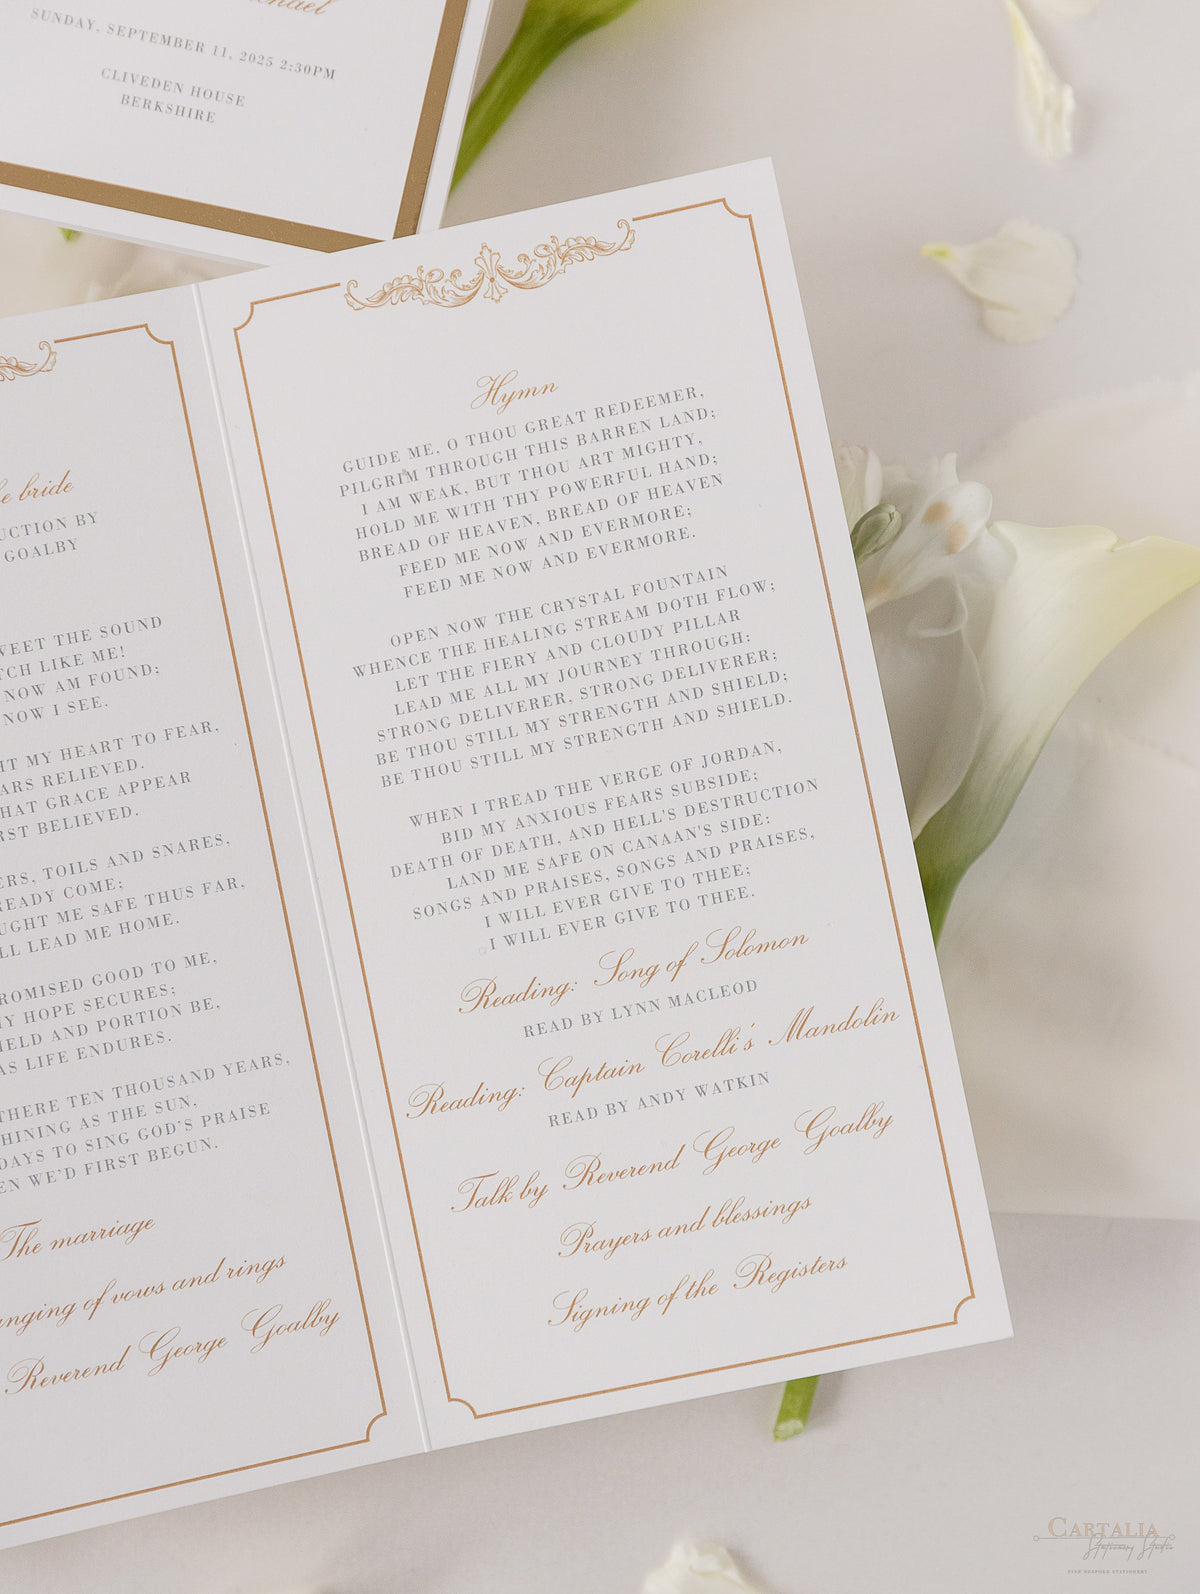 SUNDAY, SEPTEMBER 11, 2025 2:30PM
CLIVEDEN HOUSE
BERKSHIRE
bride
BY
GOALBY
THE SOUND
LIKE ME!
NOW AM FOUND;
NOW I SEE.
MY HEART TO FEAR,
RELIEVED.
GRACE APPEAR
BELIEVED.
TOILS AND SNARES,
COME;
ME SAFE THUS FAR,
LEAD ME HOME.
GOOD TO ME,
HOPE SECURES;
AND PORTION BE,
AS LIFE ENDURES.
THERE TEN THOUSAND YEARS,
AS THE SUN,
DAYS TO SING GOD'S PRAISE
WE'D FIRST BEGUN.
The marriage
of vows and rings
Reverend George Goalby
Hymn
GUIDE ME, O THOU GREAT REDEEMER,
PILGRIM THROUGH THIS BARREN LAND;
I AM WEAK, BUT THOU ART MIGHTY,
HOLD ME WITH THY POWERFUL HAND;
BREAD OF HEAVEN, BREAD OF HEAVEN
FEED ME NOW AND EVERMORE;
FEED ME NOW AND EVERMORE.
OPEN NOW THE CRYSTAL FOUNTAIN
WHENCE THE HEALING STREAM DOTH FLOW;
LET THE FIERY AND CLOUDY PILLAR
LEAD ME ALL MY JOURNEY THROUGH:
STRONG DELIVERER, STRONG DELIVERER;
BE THOU STILL MY STRENGTH AND SHIELD;
BE THOU STILL MY STRENGTH AND SHIELD.
WHEN I TREAD THE VERGE OF JORDAN,
BID MY ANXIOUS FEARS SUBSIDE;
DEATH OF DEATH, AND HELL'S DESTRUCTION
LAND ME SAFE ON CANAAN'S SIDE:
SONGS AND PRAISES, SONGS AND PRAISES,
I WILL EVER GIVE TO THEE;
I WILL EVER GIVE TO THEE.
Reading: Song of Solomon
READ BY LYNN MACLEOD
Reading: Captain Corelli's Mandolin
READ BY ANDY WATKIN
Talk by Reverend George Goalby
Prayers and blessings
Signing of the Registers
CARTALIA
Stationery Studio
FINE BESPOKE STATIONERY